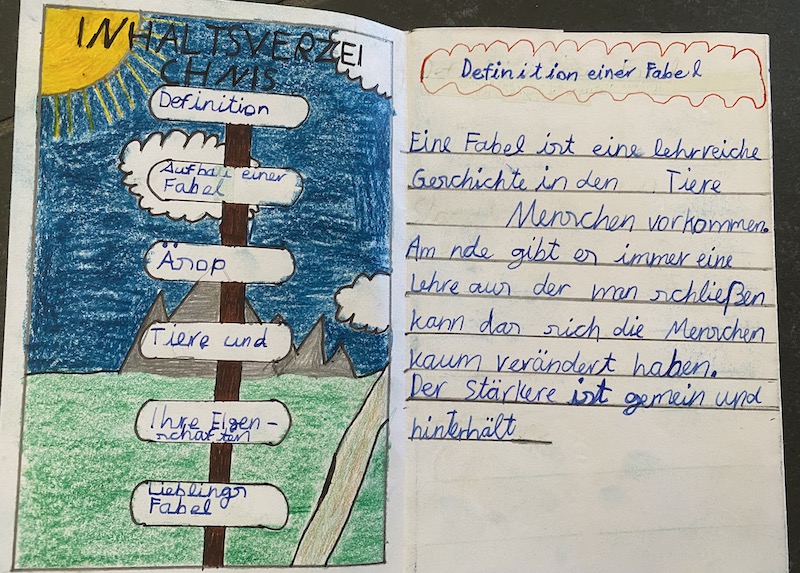 INHALTSVERZEI
CHNIS
Definition
Aufbau einer
Fabel
Äsop
Tiere und
Ihre Eigen-
schaften
Lieblings
Fabel
Definition einer Fabel
Eine Fabel ist eine lehrreiche
Geschichte in den Tiere
Menschen vorkommen.
Am nde gibt es immer eine
Lehre aus der man schließen
kann das sich die Menschen
kaum verändert haben.
Der Stärkere ist gemein und
hinterhält